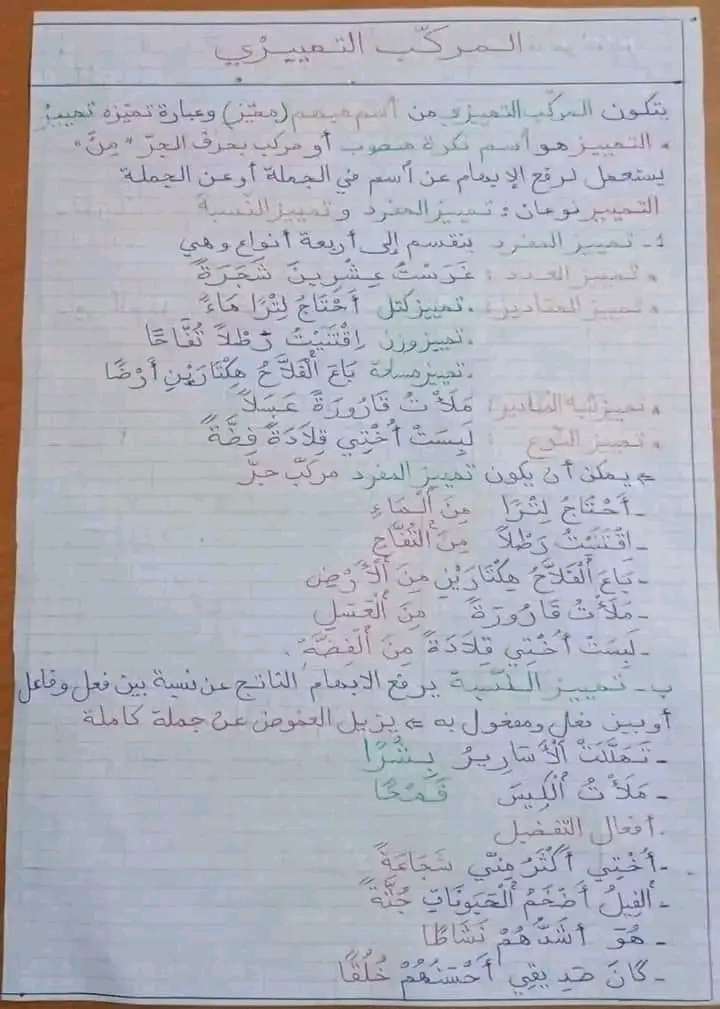 المركّب التمييزي
يتكون المركّب التمييزي من اسم مبهم (مميّز) وعبارة تميّزه تمييز
• التمييز هو اسم نكرة منصوب أو مركب بحرف الجرّ "مِنْ"
يستعمل لرفع الإبهام عن اسم في الجملة أو عن الجملة
التمييز نوعان: تمييز المفرد وتمييز النّسبة
أ - تمييز المفرد ينقسم إلى أربعة أنواع وهي
• تمييز العدد: غَرَسْتُ عِشْرِينَ شَجَرَةً
• تمييز المقادير: • تمييز كتل أَحْتَاجُ لِتْرًا مَاءً
• تمييز وزن اِقْتَنَيْتُ رَطْلاً تُفَّاحًا
• تمييز مساحة بَاعَ ٱلْفَلاَّحُ هِكْتَارَيْنِ أَرْضًا
• تمييز شبه المقادير: مَلَأْتُ قَارُورَةً عَسَلاً
• تمييز النّوع : لَبِسَتْ أُخْتِي قِلَادَةً فِضَّةً
⇐ يمكن أن يكون تمييز المفرد مركّب جرّ
- أَحْتَاجُ لِتْرًا مِنَ ٱلْمَاءِ
- اِقْتَنَيْتُ رَطْلاً مِنَ ٱلتُّفَّاحِ
- بَاعَ ٱلْفَلاَّحُ هِكْتَارَيْنِ مِنَ ٱلْأَرْضِ
- مَلَأْتُ قَارُورَةً مِنَ ٱلْعَسَلِ
- لَبِسَتْ أُخْتِي قِلَادَةً مِنَ ٱلْفِضَّةِ.
ب - تمييز النّسبة يرفع الابهام الناتج عن نسبة بين فعل وفاعل
أو بين فعل ومفعول به ⇐ يزيل الغموض عن جملة كاملة
- تَهَلَّلَتْ ٱلْأَسَارِيرُ بِشْرًا
- مَلَأْتُ ٱلْكِيسَ قَمْحًا
• أفعال التفضيل
- أُخْتِي أَكْثَرُ مِنِّي شَجَاعَةً
- ٱلْفِيلُ أَضْخَمُ ٱلْحَيَوَنَاتِ جُثَّةً
- هُوَ أَشَدُّهُمْ نَشَاطًا
- كَانَ صَدِيقِي أَحْسَنُهُمْ خُلُقًا